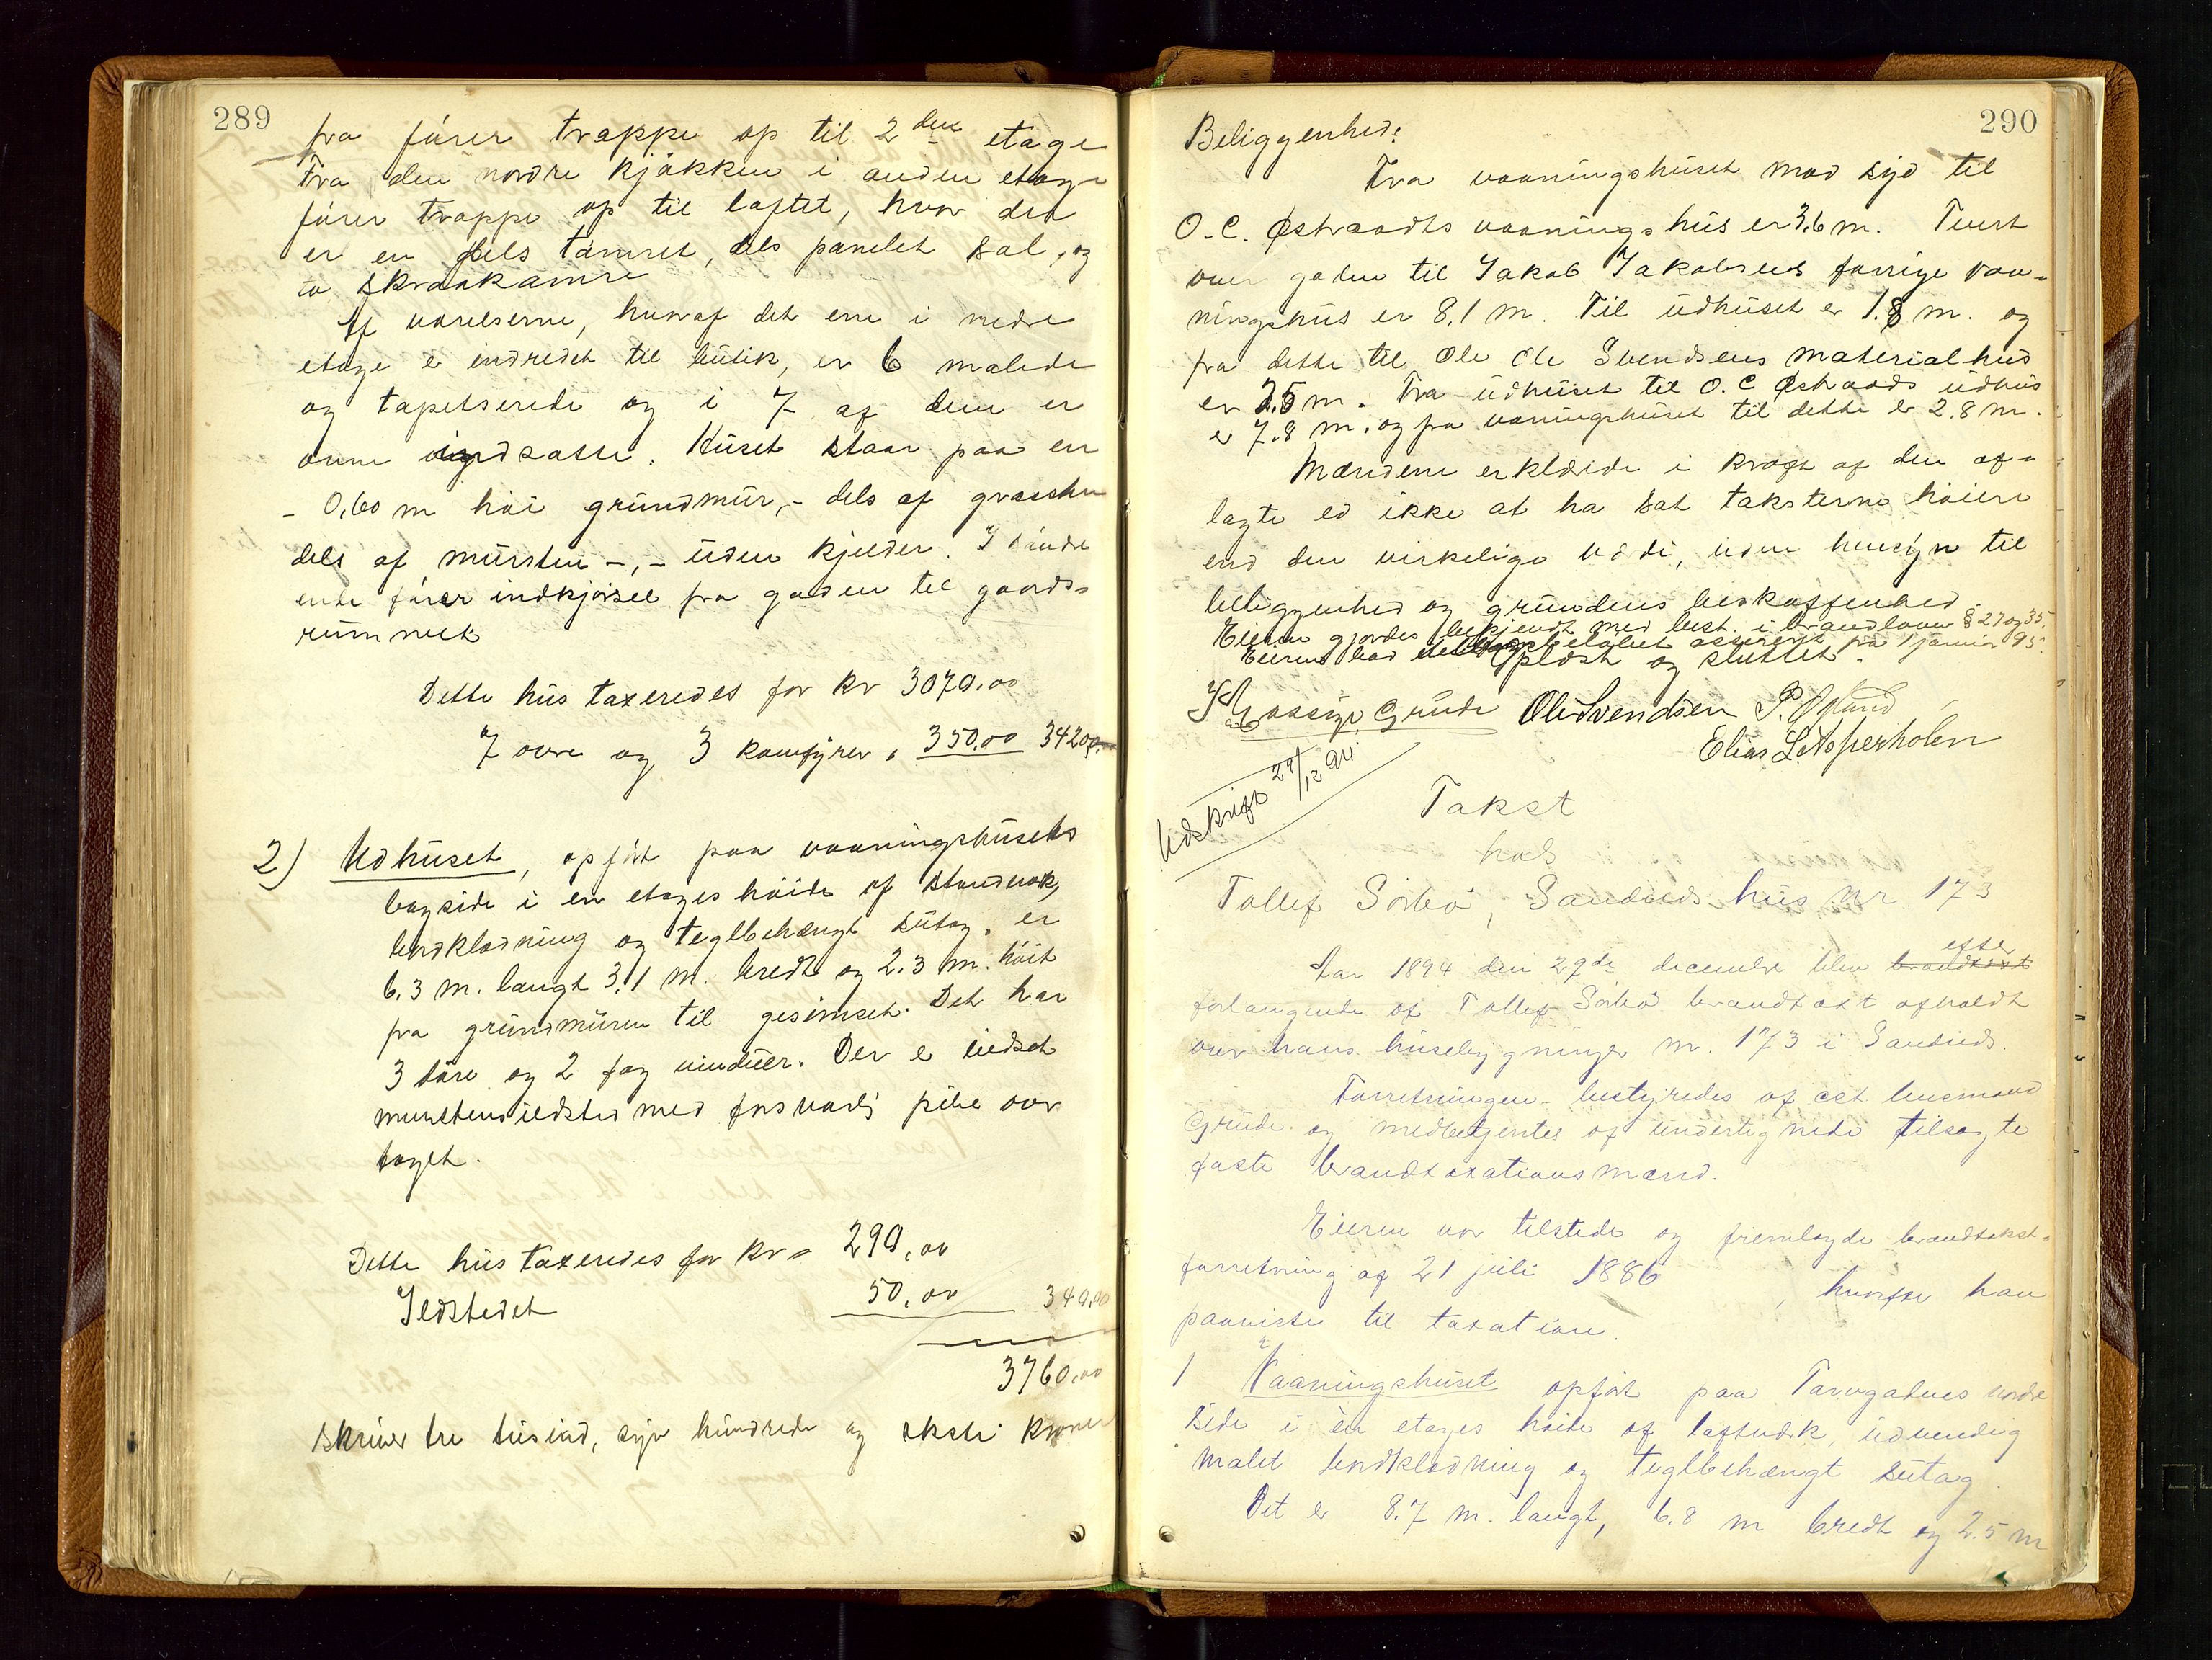 289
fra fører trappe op til 2den etage
Fra den nordre kjøkken i anden etage
fører trappe op til loftet, hvor der
er en dels tømret, dels panelet sal, og
to skraakamre
Af værelserne, hvoraf det ene i nedre
etage er indredet til butik, er 6 malede
og tapetserede og i 7 af dem er
ovne indsatte. Huset staar paa en
- 0,60 m høi grundmur, - dels af graasten
dels af mursten -, - uden kjelder. I søndre
ende fører indkjørsel fra gaden til gaards-
rummet
Dette hus taxeredes for kr 3070.00
7 ovne og 3 komfyrer " 350.00 3420.
2) Udhuset, opført paa vaaningshusets
bagside i en etages høide af standverk,
bordklædning og teglbehængt sutag, er
6.3 m. langt 3.1 m. bredt og 2.3 m. høit
fra grundmuren til gesimset. Det har
3 døre og 2 fag vinduer. Der er indsat
murstensildsted med forsvarlig pibe over
taget.
Dette hus taxeredes for kr = 290,00
Ildstedet 50,00 340.00
3760.00
skriver tre tusind, syv hundrede og seksti kroner
290
Beliggenhed:
Fra vaaningshuset mod syd til
O. C. Østraadts vaaningshus er 3.6 m. Tvert
over gaden til Jakob Jakobsens forrige vaa-
ningshus er 8,1 m. Til udhuset er 1.8 m. og
fra dette til Ole Ole Svendsens materialhus
er 2.5 m. Fra udhuset til O. C Østraads udhus
er 7.8 m. og fra vaaningshuset til dette er 2.8 m.
Mændene erklærede i kraft af den af-
lagte ed ikke at ha sat taksterne høiere
end den virkelige værdi, uden hensyn til
beliggenhed og grundens beskaffenhed.
Eieren gjordes bekjendt med best. i brandloven § 27 og 35.
Eieren bad beløbet assureret fra 1 januar 95.
Oplæst og sluttet.
Grude Ole Svendsen P. Østand
Elias L. Asperholen
Udskrift 29/12 94.
Takst
hos
Tollef Sørbø, Sandnes hus nr. 173
Aar 1894 den 29de decembr blev brandtaxt efter
forlangende af Tollef Sørbø brandtaxt afholdt
over hans husebygninger nr. 173 i Sandnes.
Forretningen bestyredes af cst. lensmand
Grude og medbetjentes af undertegnede tilsagte
faste brandtaxationsmænd.
Eieren var tilstede og fremlagde brandtakst-
forretning af 21 juli 1886, hvorefter han
paaviste til taxation.
1 Vaaningshuset opført paa Torvgadens nordre
side i en etages høide af laftverk, udvendig
malet bordklædning og teglbehængt sutag
Det er 8.7 m. langt, 6.8 m bredt og 2.5 m